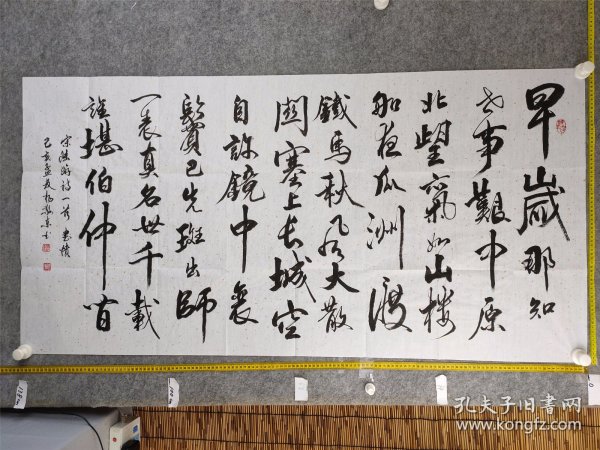 早歲那知
世事艱中原
北望氣如山樓
船夜瓜洲渡
鐵馬秋風大散
關塞上長城空
自許鏡中衰
鬢已先斑出師
一表真名世千載
誰堪伯仲間
宋陸游詩一首 書憤
己亥孟夏
孔夫子旧书网
www.kongfz.com